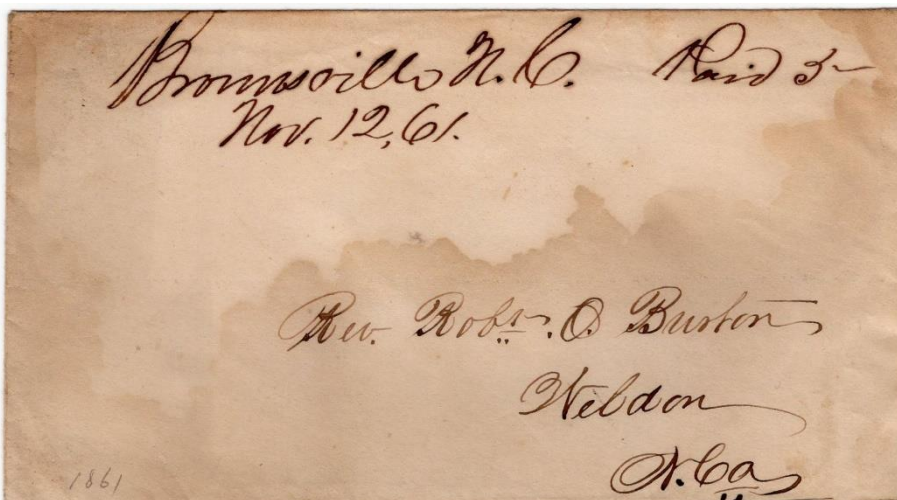 Brownsville N. C. Paid 5
Nov. 12, 61.
Rev. Robt. O. Burton
Weldon
N. Ca
1861